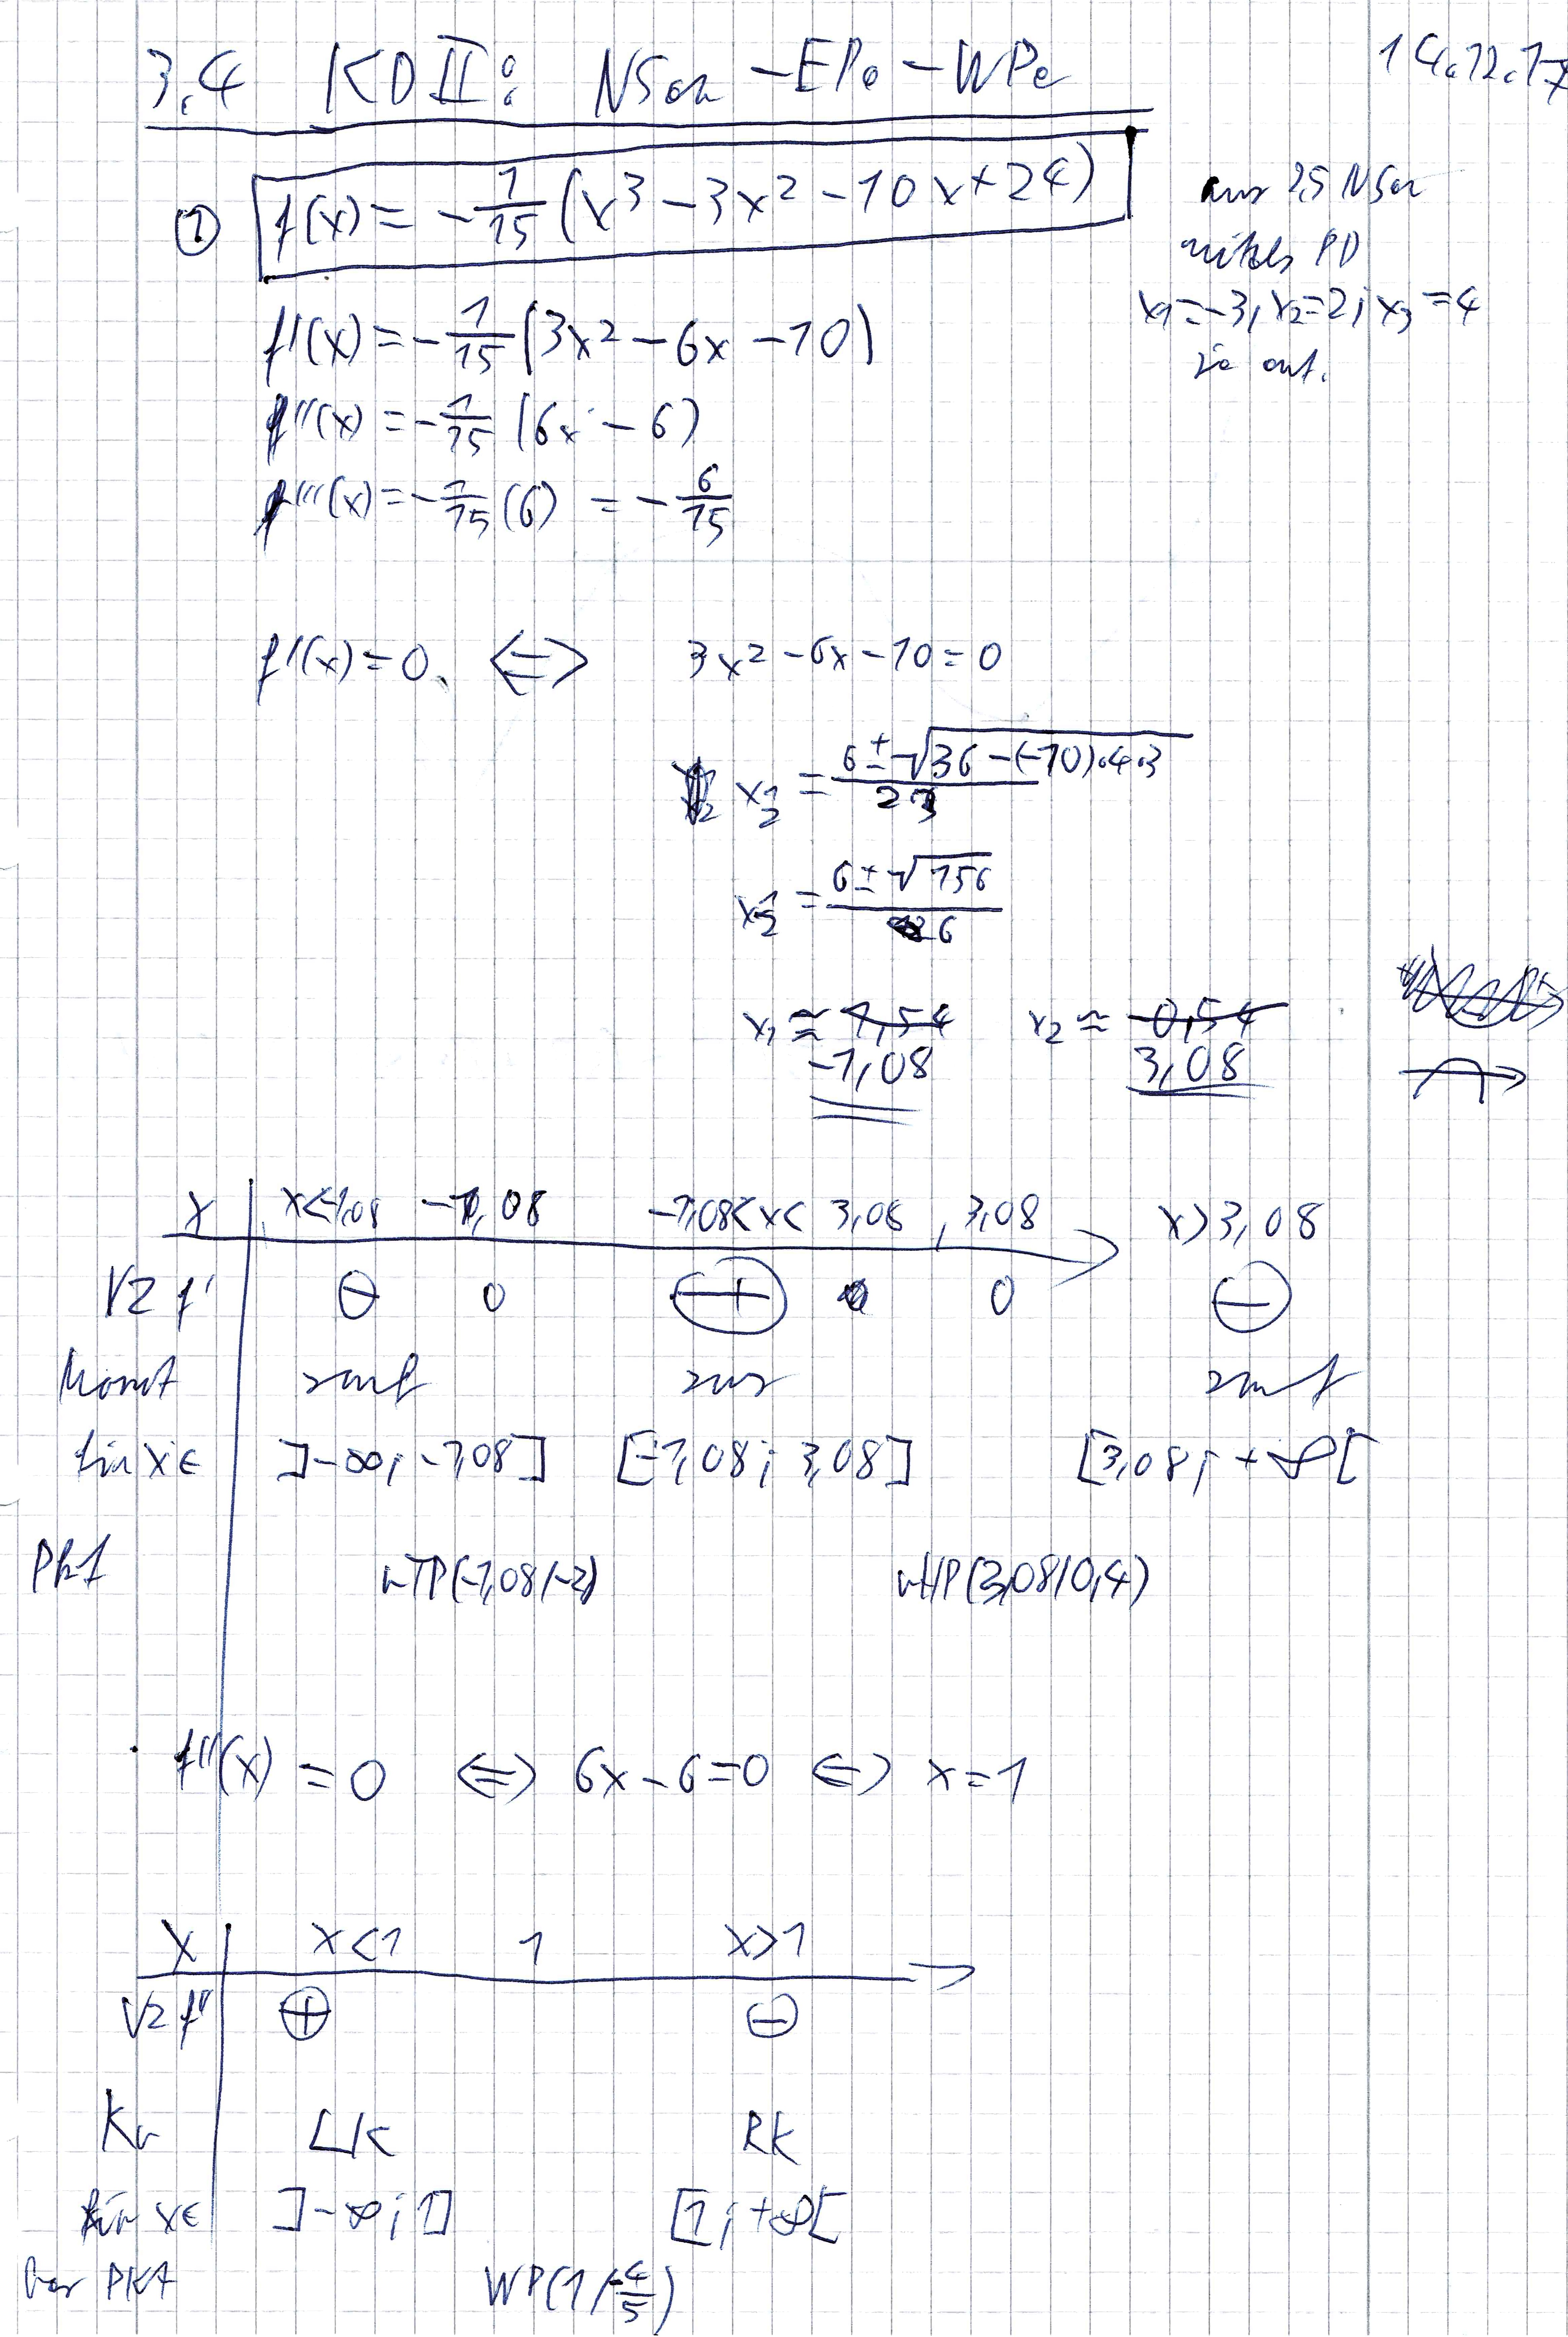 3.4 KD II: NSen - EPe - WPe 14.12.17
① f(x) = -1/15 (x³ - 3x² - 10x + 24)
aus 2,5 NSen
mittels PD
x1 = -3, x2 = 2; x3 = 4
je einf.
f'(x) = -1/15 (3x² - 6x - 10)
f''(x) = -1/15 (6x - 6)
f'''(x) = -1/15 (6) = -6/15
f'(x) = 0 ⇔ 3x² - 6x - 10 = 0
x1/2 = (6 ± √(36 - (-10)·4·3)) / (2·3)
x1/2 = (6 ± √156) / 6
x1 ≈ 1,54 x2 ≈ -0,54
-1,08 3,08
x x<-1,08 -1,08 -1,08<x< 3,08 3,08 x>3,08
VZ f' ⊖ 0 ⊕ 0 ⊖
Monot smf sms smf
für x∈ ]-∞; -1,08] [-1,08; 3,08] [3,08; +∞[
Pkt rTP(-1,08/-2) rHP(3,08/0,4)
f''(x) = 0 ⇔ 6x - 6 = 0 ⇔ x = 1
x x<1 1 x>1
VZ f'' ⊕ ⊖
Kr LK RK
für x∈ ]-∞; 1] [1; +∞[
bes PKt WP(1/-4/5)